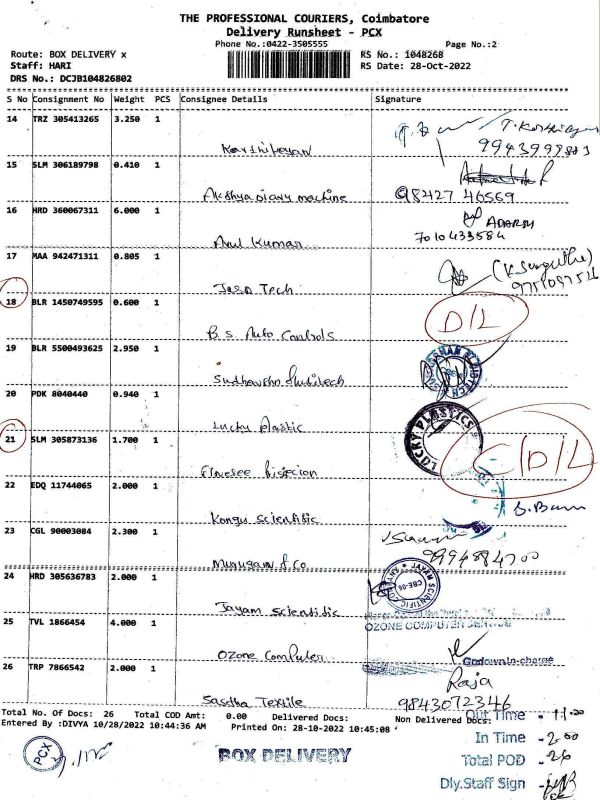 THE PROFESSIONAL COURIERS, Coimbatore
Delivery Runsheet - PCX
Phone No.:0422-3505555
Page No.:2
Route: BOX DELIVERY x
RS No.: 1048268
Staff: HARI
RS Date: 28-Oct-2022
DRS No.: DCJB104826802
S No Consignment No Weight PCS Consignee Details Signature
14 TRZ 305413265 3.250 1
Karthikeyan
9943999883
15 SLM 306189798 0.410 1
Akshya diary machine
98427 46569
16 HRD 360067311 6.000 1
Arul Kumar
ADARSH
7010433584
17 MAA 942471311 0.805 1
Jaso Tech
18 BLR 1450749595 0.600 1
B.S. Auto Controls
D/L
19 BLR 5500493625 2.950 1
20 PDK 8040440 0.940 1
Lucky Plastic
LUCKY PLASTICS
21 SLM 305873136 1.700 1
C/D/L
22 EDQ 11744065 2.000 1
Kongu Scientific
23 CGL 90003084 2.300 1
Murugan & Co
24 HRD 305636783 2.000 1
Jayam Scientific
JAYAM SCIENTIFIC COMPANY
CBE-06
25 TVL 1866454 4.000 1
Ozone Computer
OZONE COMPUTER
Godown In-charge
26 TRP 7866542 2.000 1
Sastha Textile
Raja
9843072346
Total No. Of Docs: 26 Total COD Amt: 0.00 Delivered Docs: Non Delivered Docs:
Entered By :DIVYA 10/28/2022 10:44:36 AM Printed On: 28-10-2022 10:45:08
PCX
BOX DELIVERY
Out Time - 11.00
In Time - 2.00
Total POD - 26
Dly.Staff Sign -